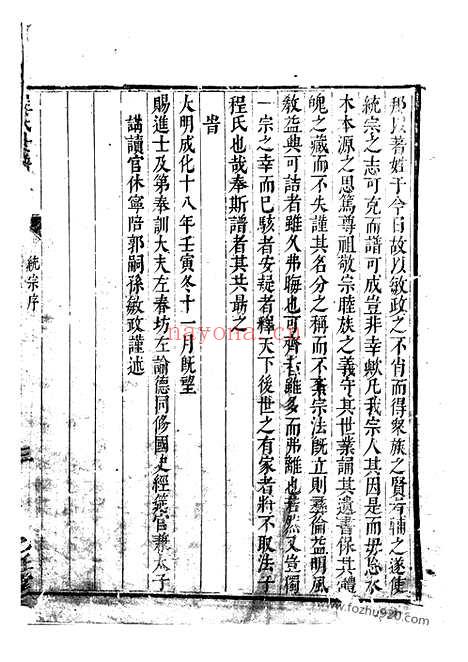 那以著姓于今日故以敏政之不肖而得衆族之賢者輔之遂使
統宗之志可克而譜可成豈非幸歟凡我宗人其因是而毋怠水
木本源之思篤尊祖敬宗睦族之義守其世業誦其遺書保其體
魄之藏而不失謹其名分之稱而不紊宗法既立則彞倫益明風
教益興可詰者雖久弗晦也可齊者雖多而弗離也若然又豈獨
一宗之幸而已駭者安疑者釋天下後世之有家者將不取法于
程氏也哉奉斯譜者其共勗之
旹
大明成化十八年壬寅冬十一月既望
賜進士及第奉訓大夫左春坊左諭德同修國史經筵官兼太子
講讀官休寧陪郭嗣孫敏政謹述
統宗序
三
nayona.cn
www.fozhu920.com